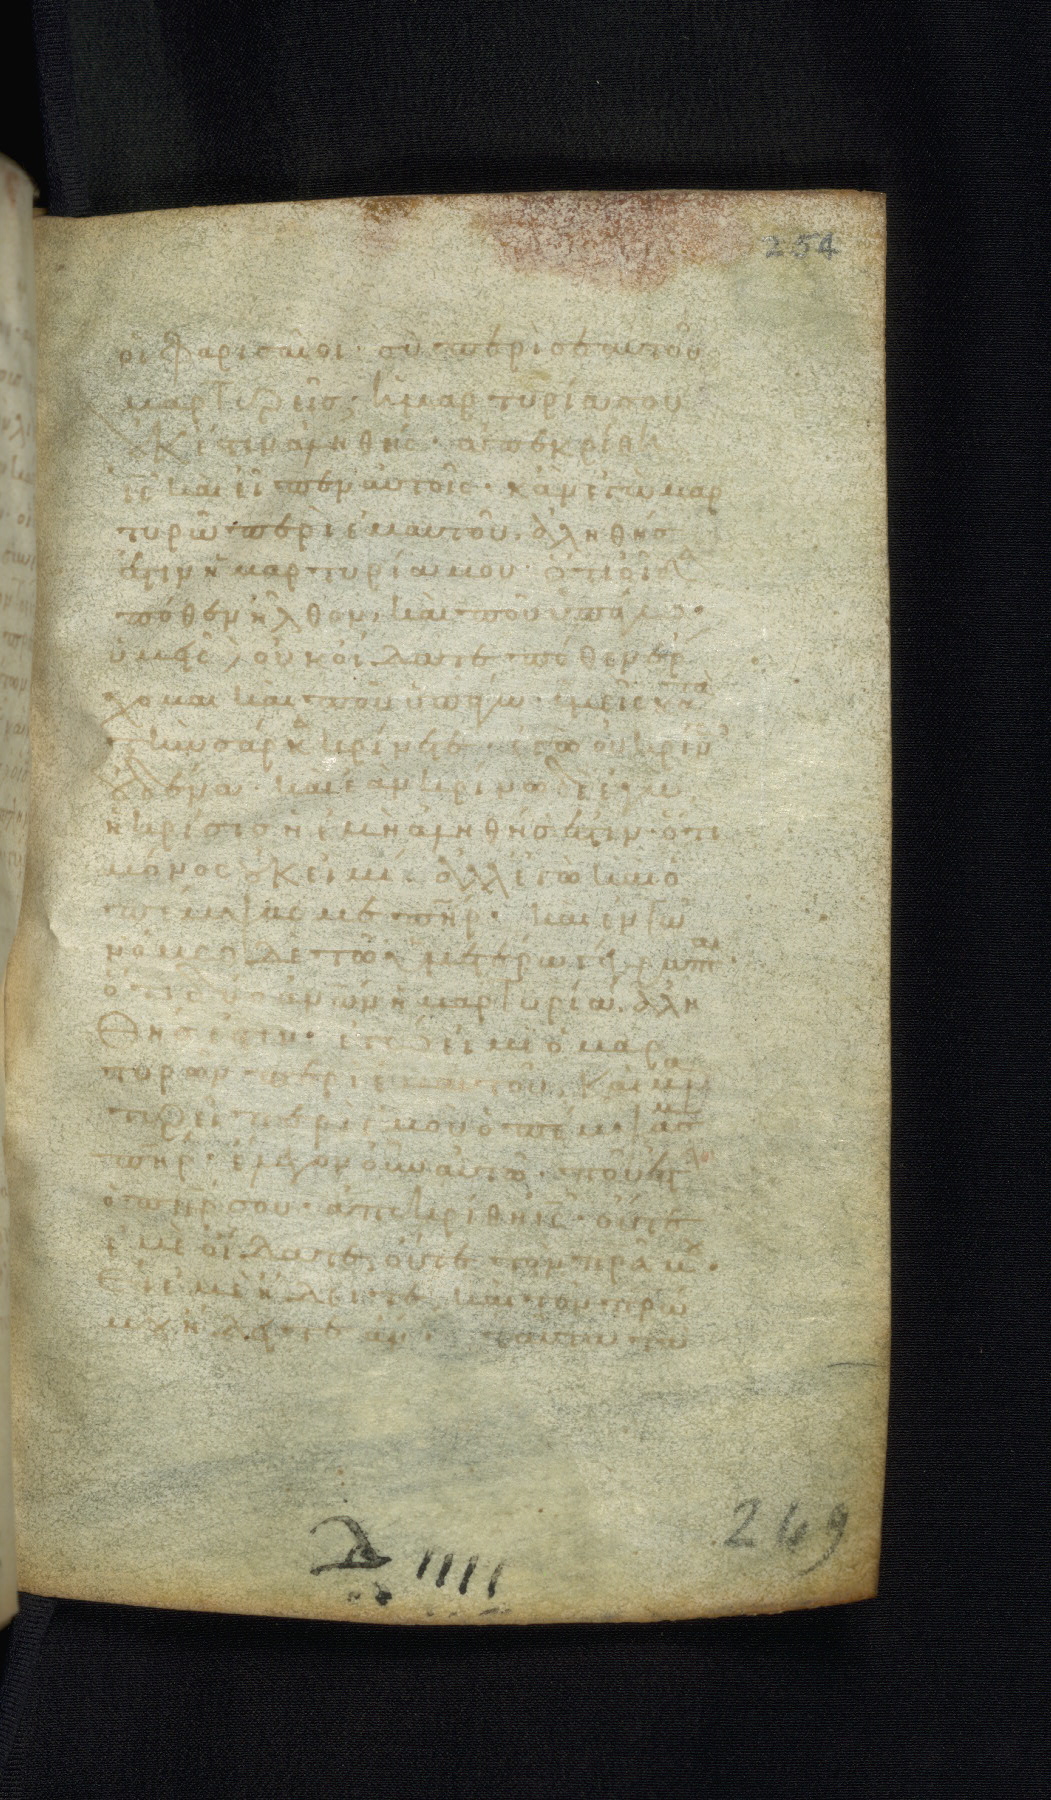 254
οἱ φαρισαῖοι· σὺ περὶ σεαυτοῦ
μαρτυρεῖς· ἡ μαρτυρία σου
οὐκ ἔστιν ἀληθής· ἀπεκρίθη
ις καὶ εἶπεν αὐτοῖς· κἂν ἐγὼ μαρ
τυρῶ περὶ ἐμαυτοῦ, ἀληθής
ἐστιν ἡ μαρτυρία μου· ὅτι οἶδα
πόθεν ἦλθον, καὶ ποῦ ὑπάγω·
ὑμεῖς δὲ οὐκ οἴδατε πόθεν ἔρ
χομαι καὶ ποῦ ὑπάγω· ὑμεῖς κατὰ
τὴν σάρκα κρίνετε· ἐγὼ οὐ κρίνω
οὐδένα· καὶ ἐὰν κρίνω δὲ ἐγὼ
ἡ κρίσις ἡ ἐμὴ ἀληθής ἐστιν· ὅτι
μόνος οὐκ εἰμί· ἀλλ' ἐγὼ καὶ ὁ
πέμψας με πηρ· καὶ ἐν τῷ
νόμῳ δὲ τῷ ὑμετέρῳ γέγραπται·
ὅτι δύο ἀνων ἡ μαρτυρία ἀλη
θής ἐστιν· ἐγώ εἰμι ὁ μαρ
τυρῶν περὶ ἐμαυτοῦ, καὶ μαρ
τυρεῖ περὶ ἐμοῦ ὁ πέμψας με
πηρ· ἔλεγον οὖν αὐτῷ· ποῦ ἐστιν
ὁ πηρ σου· ἀπεκρίθη ις· οὔτε
ἐμὲ οἴδατε, οὔτε τὸν πρα μου·
εἰ ἐμὲ ᾔδειτε, καὶ τὸν πρα
μου ᾔδειτε ἄν· ταῦτα τὰ
269